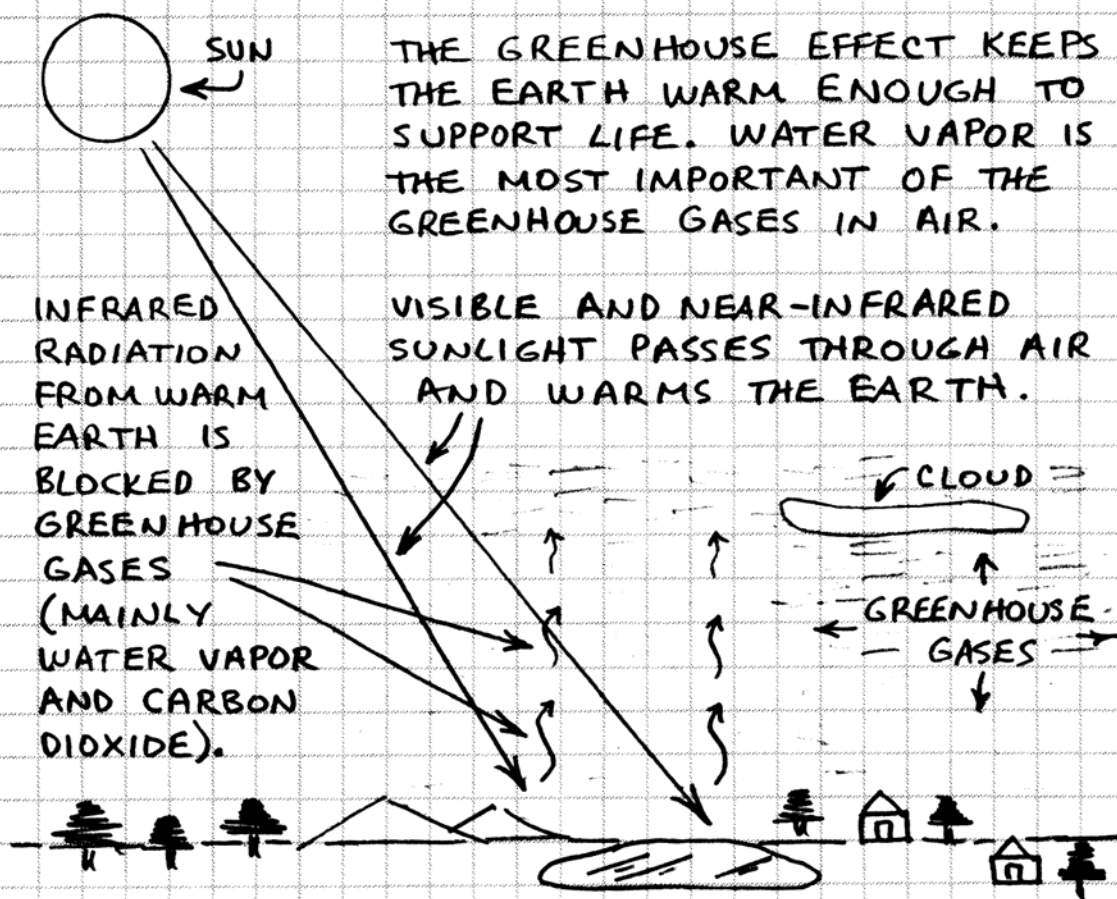 SUN
THE GREENHOUSE EFFECT KEEPS
THE EARTH WARM ENOUGH TO
SUPPORT LIFE. WATER VAPOR IS
THE MOST IMPORTANT OF THE
GREENHOUSE GASES IN AIR.
INFRARED
RADIATION
FROM WARM
EARTH IS
BLOCKED BY
GREENHOUSE
GASES
(MAINLY
WATER VAPOR
AND CARBON
DIOXIDE).
VISIBLE AND NEAR-INFRARED
SUNLIGHT PASSES THROUGH AIR
AND WARMS THE EARTH.
CLOUD
GREENHOUSE
GASES